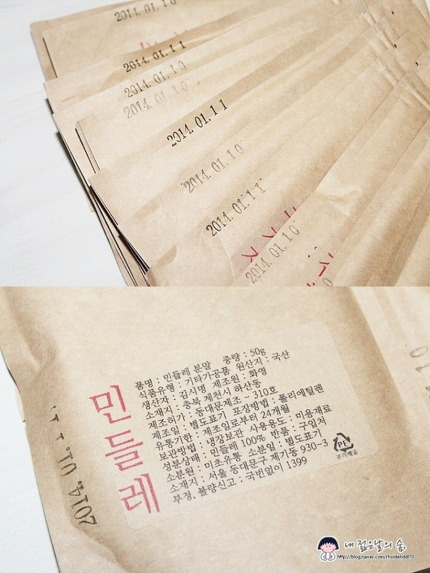 2014. 01. 1 0
2014. 01. 1 1
2014. 01. 1 0
2014. 01. 1 0
2014. 01. 1 1
2014. 01. 1 0
2014. 01. 1 1
2014. 01. 1 0
민들레
품명 : 민들레 분말 중량 : 50g
식품유형 : 기타가공품 원산지 : 국산
생산자 : 김시명 제조원 : 화영
소재지 : 충북 제천시 하산동
제조허가 : 동대문제조 - 310호
제조일 : 별도표기 포장방법 : 폴리에틸렌
유통기한 : 제조일로부터 24개월
보관방법 : 냉장보관 사용용도 : 미용재료
성분상태 : 민들레 100% 반품 : 구입처
소분원 : 미초유통 소분일 : 별도표기
소재지 : 서울 동대문구 제기동 930-3
부정, 불량신고 : 국번없이 1399
2014. 01. 1
내 젊은날의 숲